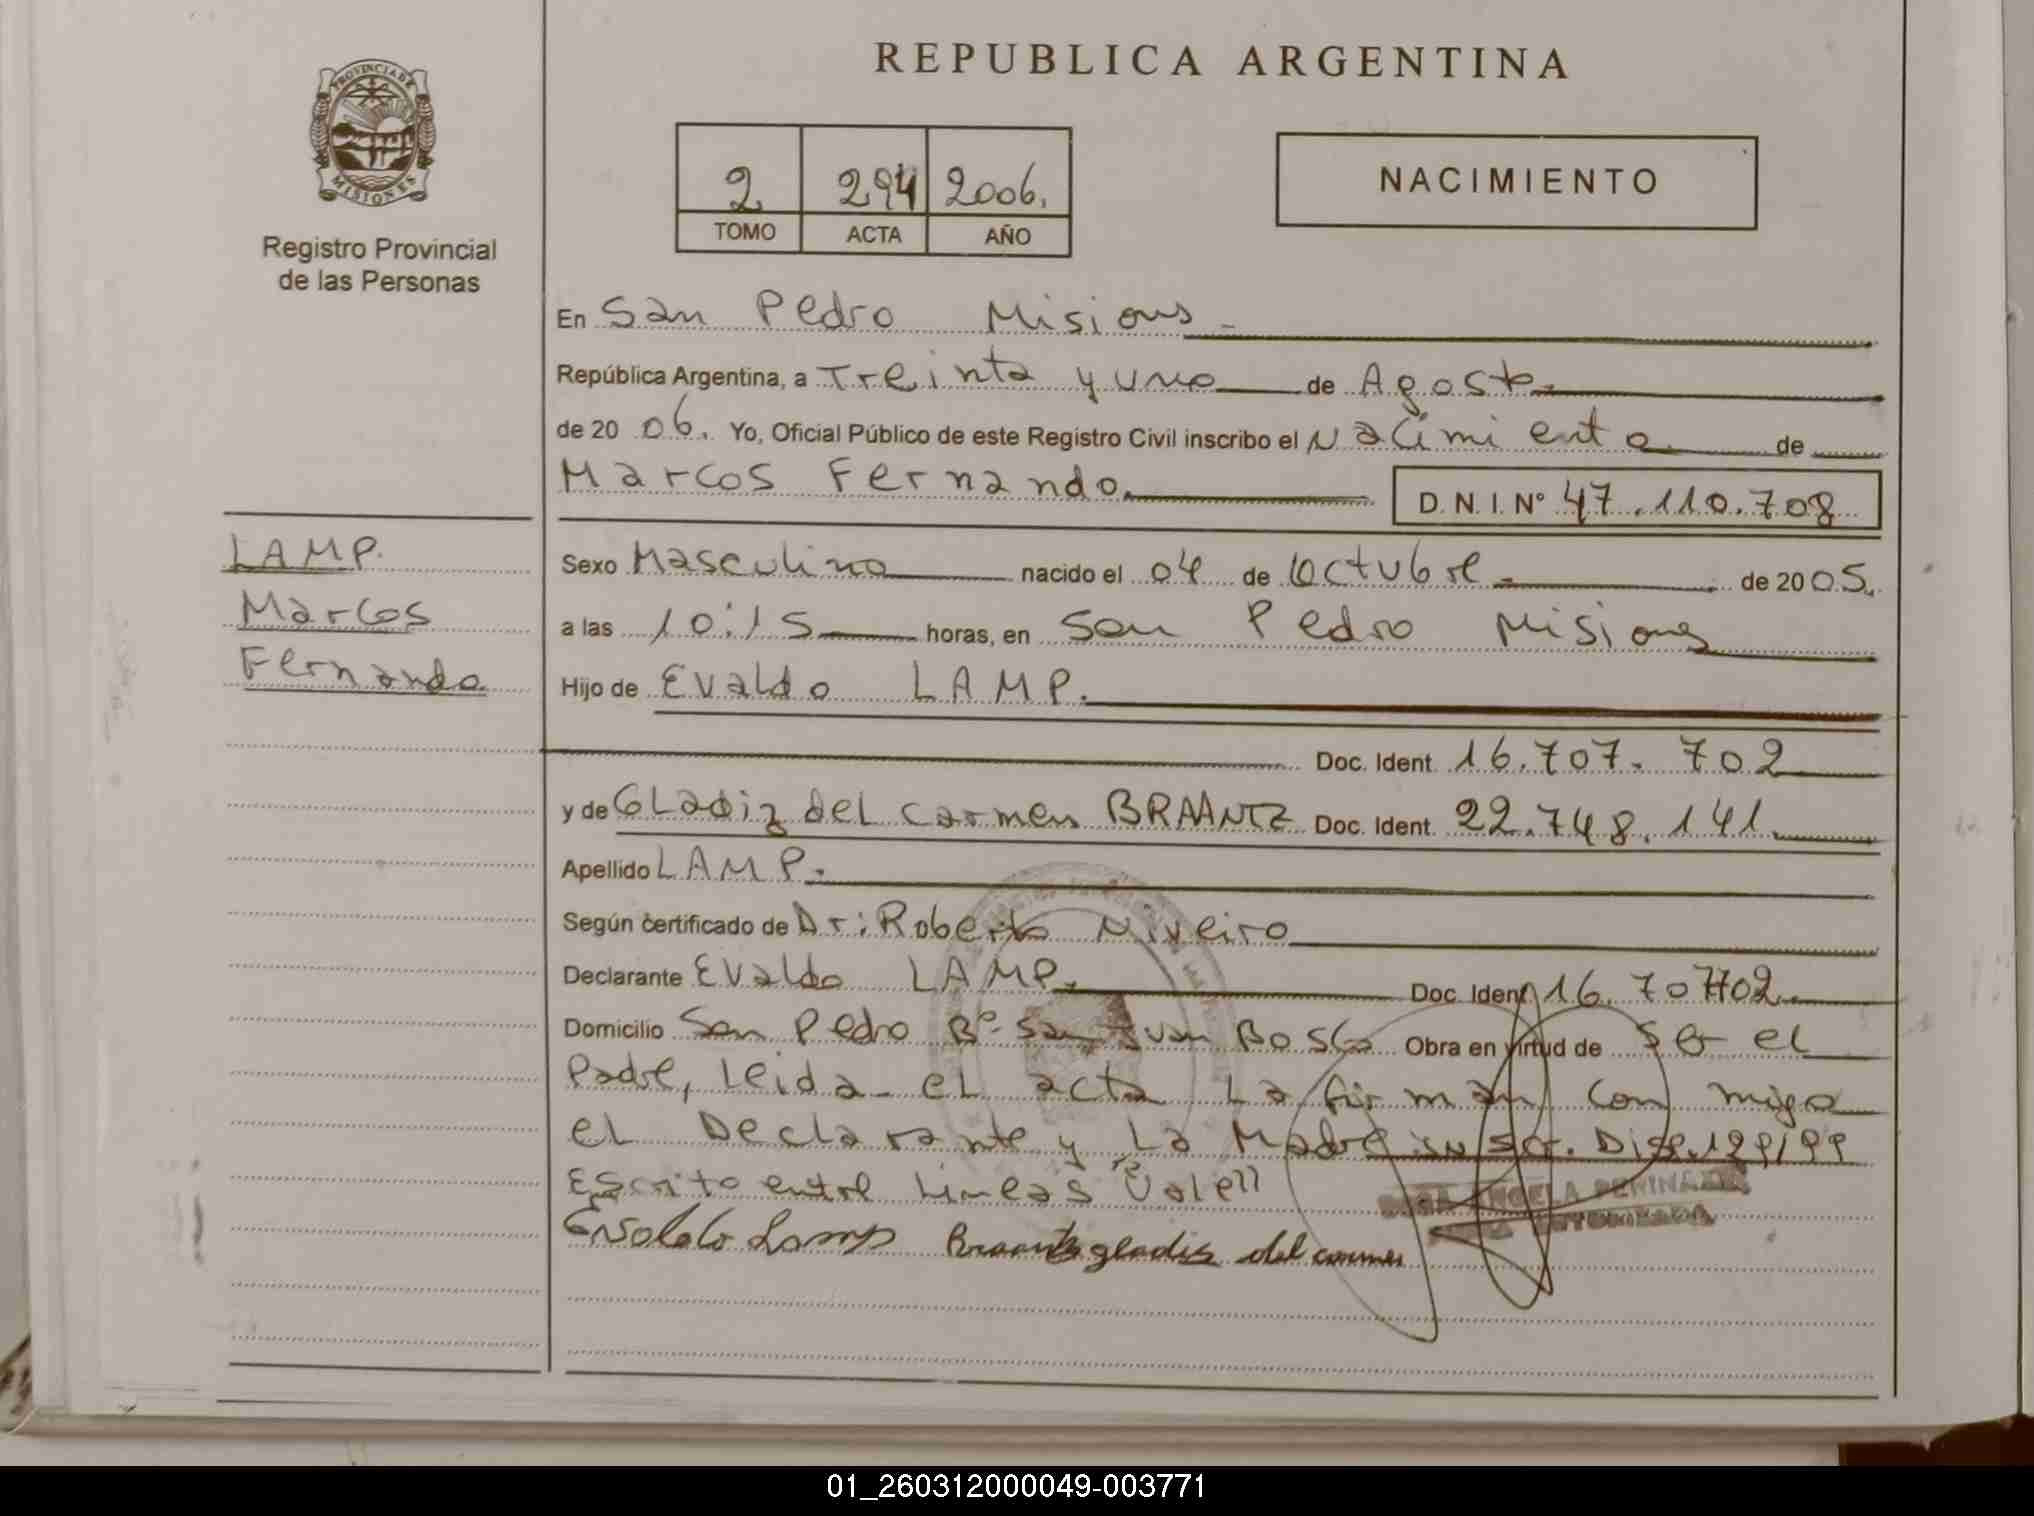 REPUBLICA ARGENTINA
PROVINCIA DE
MISIONES
Registro Provincial
de las Personas
2 294 2006.
TOMO ACTA AÑO
NACIMIENTO
En San Pedro Misiones
República Argentina, a Treinta y uno de Agosto
de 20 06. Yo, Oficial Público de este Registro Civil inscribo el Nacimiento de
Marcos Fernando. D.N.I. Nº 47.110.708
LAMP.
Marcos
Fernando
Sexo Masculino nacido el 04 de Octubre de 2005.
a las 10:15 horas, en San Pedro Misiones
Hijo de Evaldo LAMP.
Doc. Ident. 16.707.702
y de Gladiz del Carmen BRAANTZ Doc. Ident. 22.748.141.
Apellido LAMP.
Según certificado de Dr: Roberto Niveiro
Declarante Evaldo LAMP. Doc. Ident. 16.707702.
Domicilio San Pedro Bº San Juan Bosco Obra en virtud de ser el
Padre, Leida el acta La firman con migo
el Declarante y La Madre Disp. 129/99
Escrito entre Lineas "re" Vale"
Evaldo Lamp Braantz gladis del carmen
01_260312000049-003771